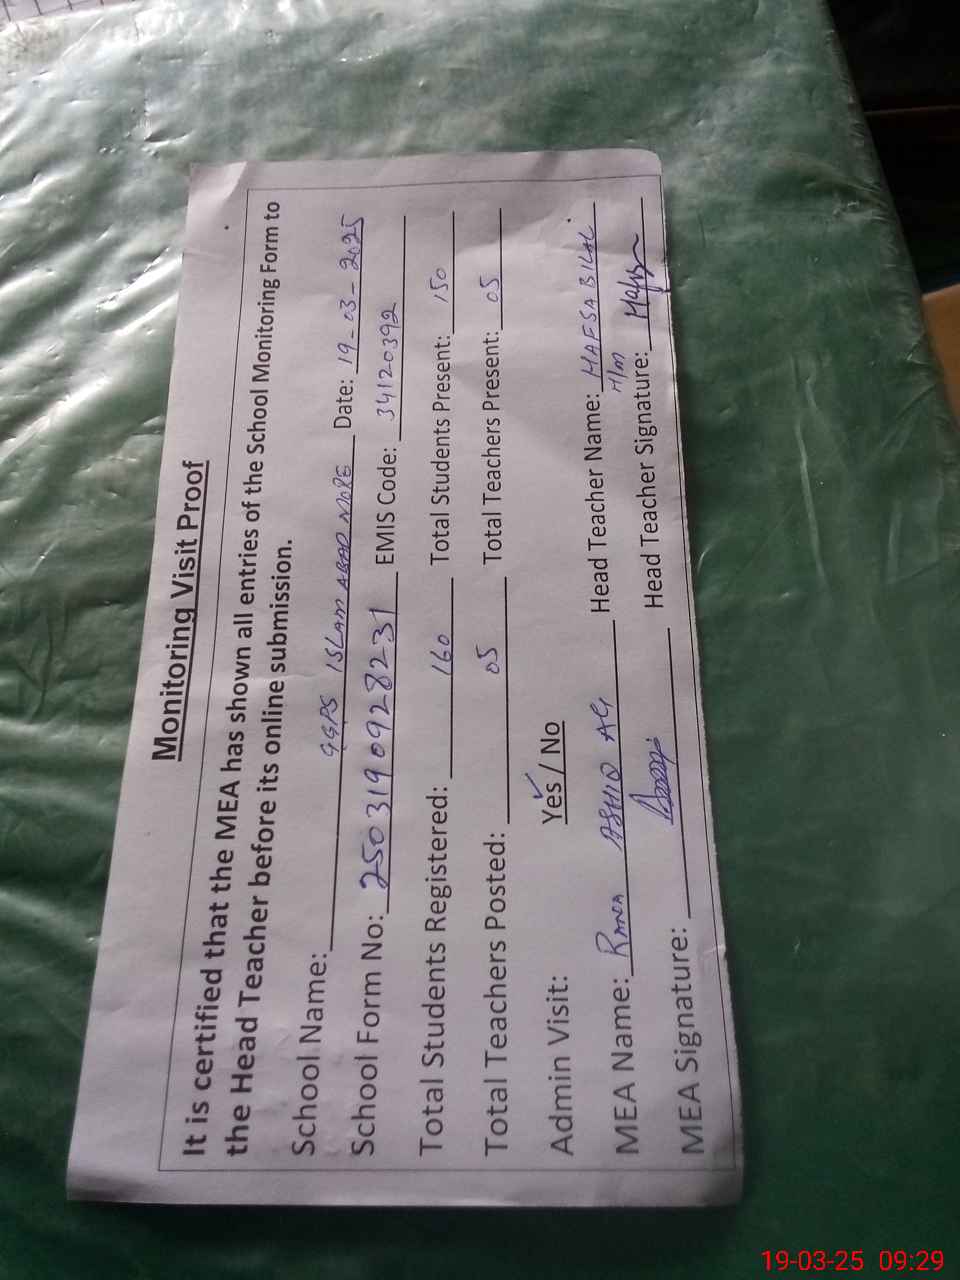 Monitoring Visit Proof
It is certified that the MEA has shown all entries of the School Monitoring Form to
the Head Teacher before its online submission.
School Name: GGPS ISLAM ABAD MORE Date: 19-03-2025
School Form No: 2503190928231 EMIS Code: 34120392
Total Students Registered: 160 Total Students Present: 150
Total Teachers Posted: 05 Total Teachers Present: 05
Admin Visit: Yes / No
MEA Name: ASHIQ Head Teacher Name: HAFSA BILAL
H/M
MEA Signature: Head Teacher Signature:
19-03-25 09:29